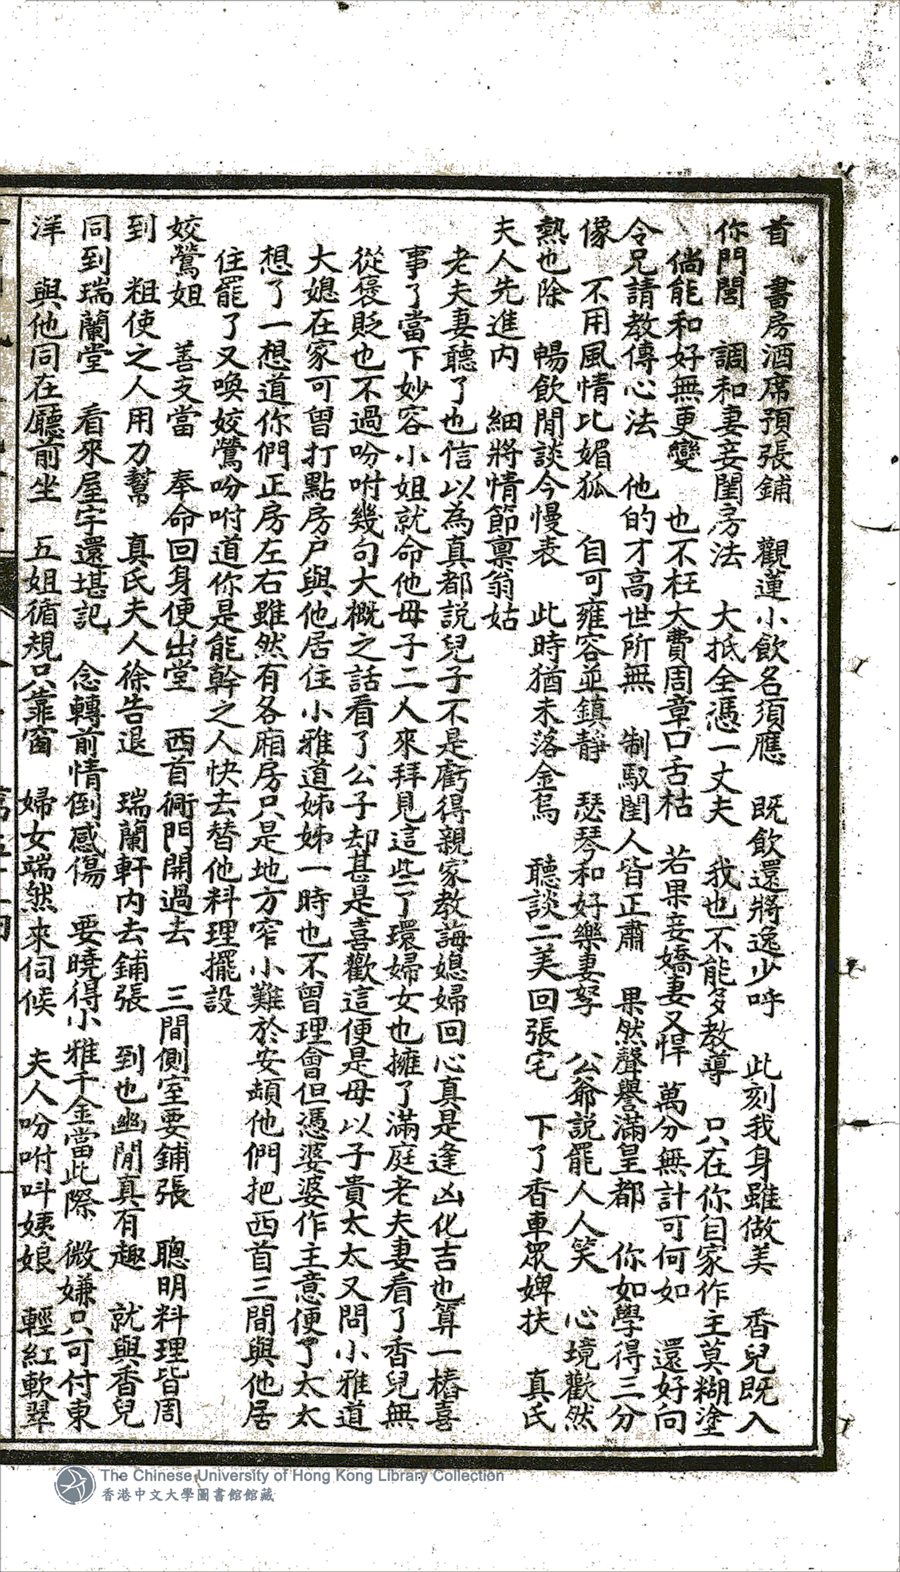 首　書房酒席預張鋪　觀蓮小飲名須應　既飲還將逸少呼　此刻我身雖做美　香兒既入
你門閭　調和妻妾閨房法　大抵全憑一丈夫　我也不能多教導　只在你自家作主莫糊塗
倘能和好無更變　也不枉大費周章口舌枯　若果妾嬌妻又悍　萬分無計可何如　還好向
令兄請教傳心法　他的才高世所無　制馭閨人皆正肅　果然聲譽滿皇都　你如學得三分
像　不用風情比媚狐　自可雍容並鎮靜　瑟琴和好樂妻孥　公爺說罷人人笑　心境歡然
熱也除　暢飲閒談今慢表　此時猶未落金烏　聽談二美回張宅　下了香車眾婢扶　真氏
夫人先進內　細將情節稟翁姑
老夫妻聽了也信以為真都說兒子不是虧得親家教誨媳婦回心真是逢凶化吉也算一樁喜
事了當下妙容小姐就命他母子二人來拜見這些丫環婦女也擁了滿庭老夫妻看了香兒無
從褒貶也不過吩咐幾句大概之話看了公子却甚是喜歡這便是母以子貴太太又問小雅道
大媳在家可曾打點房戶與他居住小雅道姊姊一時也不曾理會但憑婆婆作主意便了太太
想了一想道你們正房左右雖然有各廂房只是地方窄小難於安頓他們把西首三間與他居
住罷了又喚姣鶯吩咐道你是能幹之人快去替他料理擺設
姣鶯姐　善支當　奉命回身便出堂　西首衕門開過去　三間側室要鋪張　聰明料理皆周
到　粗使之人用力幫　真氏夫人徐告退　瑞蘭軒內去鋪張　到也幽閒真有趣　就與香兒
同到瑞蘭堂　看來屋宇還堪記　念轉前情倒感傷　要曉得小雅千金當此際　微嫌只可付東
洋　與他同在廳前坐　五姐循規只靠窗　婦女端然來伺候　夫人吩咐叫姨娘　輕紅軟翠
The Chinese University of Hong Kong Library Collection
香港中文大學圖書館館藏